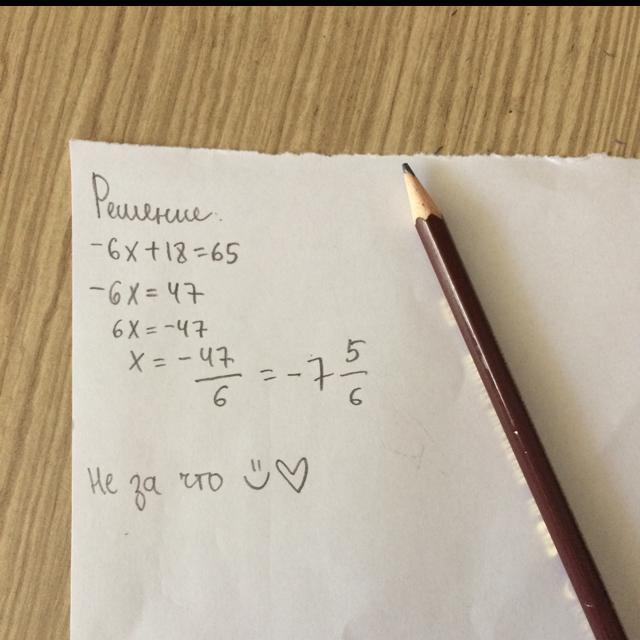 Решение.
-6x+18=65
-6x=47
6x=-47
x = -47/6 = -7 5/6
Не за что